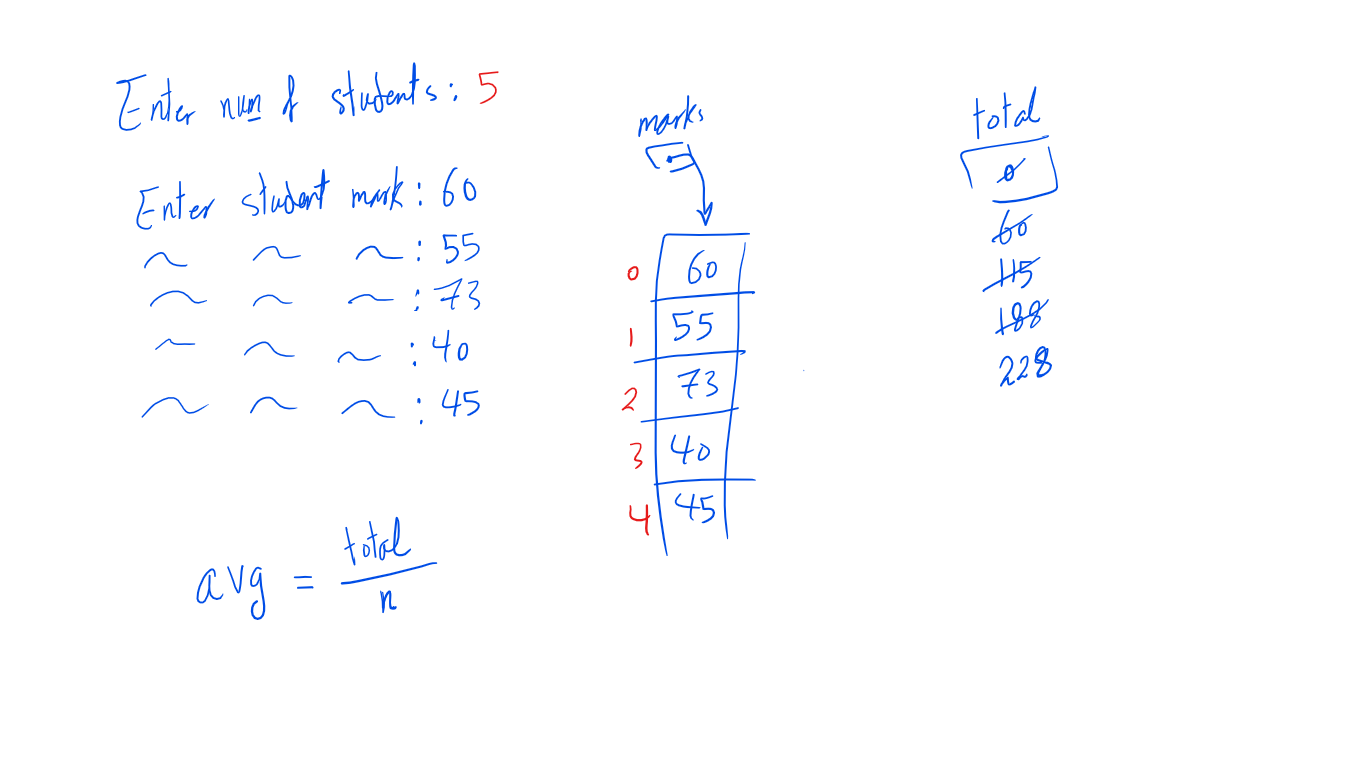 Enter num of students: 5
Enter student mark: 60
~ ~ ~: 55
~ ~ ~: 73
~ ~ ~: 40
~ ~ ~: 45
avg = total
n
marks
0 60
1 55
2 73
3 40
4 45
total
0
60
115
188
228